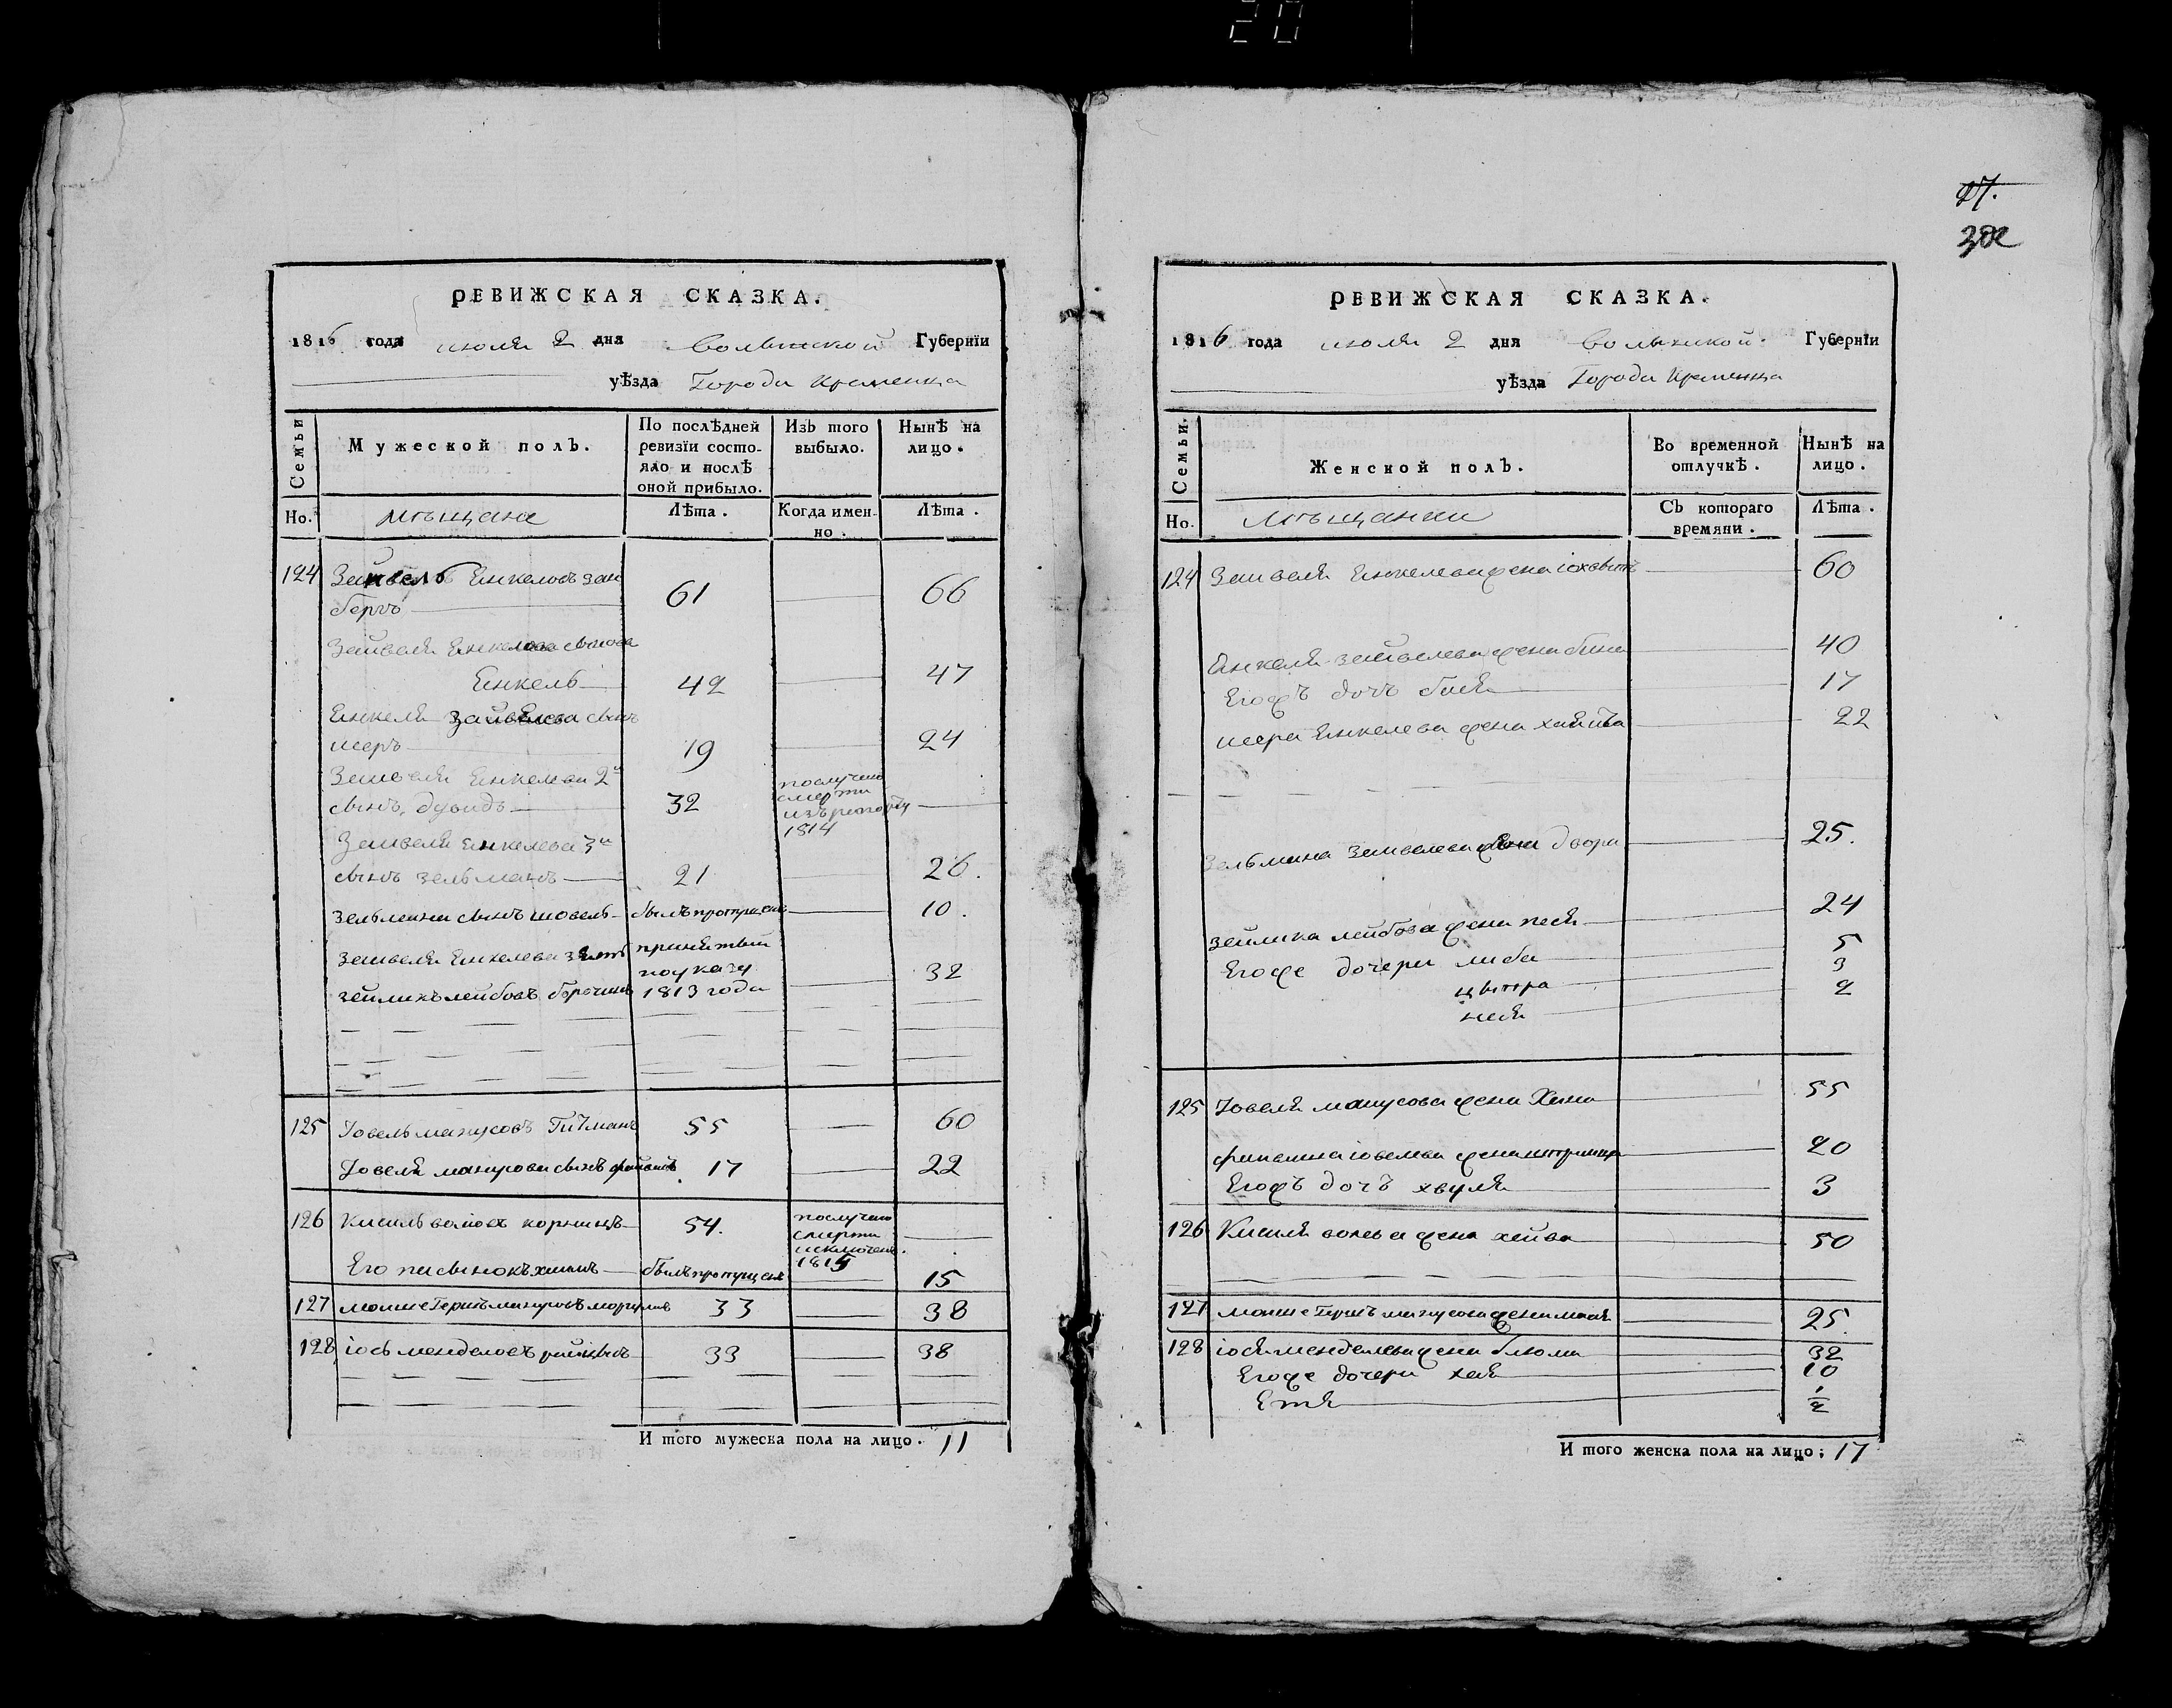 20
РЕВИЖСКАЯ СКАЗКА.
1816 года июля 2 дня волынской Губернїи
уѣзда Города Кременца
Семьи
Мужеской полъ.
По послѣдней ревизїи состояло и послѣ оной прибыло.
Изъ того выбыло.
Нынѣ на лицо.
Но.
мѣщане
Лѣта.
Когда именно.
Лѣта.
124 Зейвель Енкеловъ
бергъ 61 66
Зейвеля Енкелева сынова
Енкель 42 47
Енкеля Зейвелева сынъ
шеръ 19 24
Зейвеля Енкелева 2й
сынъ дувидъ 32 послучаю смерти 1814
Зейвеля Енкелева 3й
сынъ зельманъ 21 26.
зельмана сынъ шовель былъ пропущенъ 10.
Зейвеля Енкелева зять принятый
по указу 32
зейликъ лейбовъ 1813 года
125 Іовель манусовъ 55 60
Іовеля манусова сынъ 17 22
126 Кисиль 54. послучаю смерти исключенъ. 1815
Его пасынокъ хаимъ былъ пропущенъ 15
127 мошке Гершъ манусовъ 33 38
128 іось менделовъ 33 38
И того мужеска пола на лицо. 11
27.
РЕВИЖСКАЯ СКАЗКА.
1816 года июля 2 дня волынской Губернїи
уѣзда Города Кременца
Семьи.
Женской полъ.
Во временной отлучкѣ.
Нынѣ на лицо.
Но.
мѣщанки
Съ котораго времяни.
Лѣта.
124 Зейвеля Енкелева жена 60
Енкеля зейвелева жена бина 40
Егожъ дочъ бася 17
шера Енкелева жена 22
Зельмана Зейвелева жена двора 25.
зейлика лейбова жена песя 24
Егоже дочери либа 5
3
неся 2
125 Іовеля манусова жена Хана 55
іовелева жена 20
Егожъ дочъ хвуля 3
126 Кисиля жена 50
127 мошке Гершъ манусова жена 25.
128 іося менделева жена блюма 32
Егоже дочери хая 10
Етя 1/2
И того женска пола на лицо: 17